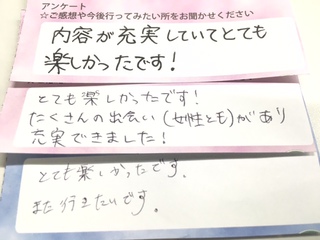 アンケート
☆ご感想や今後行ってみたい所をお聞かせください
内容が充実していてとても
楽しかったです!
とても楽しかったです!
たくさんの出会い(女性とも)があり
充実できました!
とても楽しかったです.
また行きたいです。